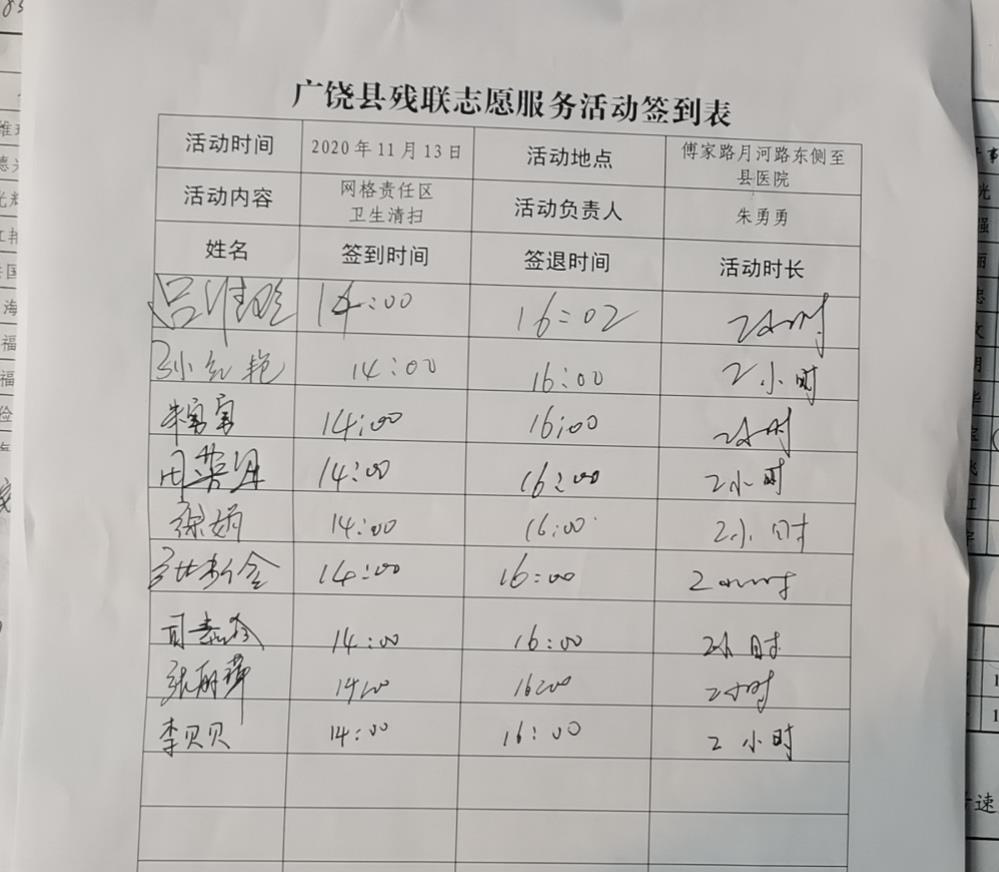 广饶县残联志愿服务活动签到表
活动时间 2020年11月13日 活动地点 傅家路月河路东侧至
县医院
活动内容 网格责任区
卫生清扫 活动负责人 朱勇勇
姓名 签到时间 签退时间 活动时长
14:00 16:02 2小时
孙红艳 14:00 16:00 2小时
14:00 16:00 2小时
14:00 16:00 2小时
徐娟 14:00 16:00 2小时
14:00 16:00 2小时
14:00 16:00 2小时
张丽萍 14:00 16:00 2小时
李贝贝 14:00 16:00 2小时